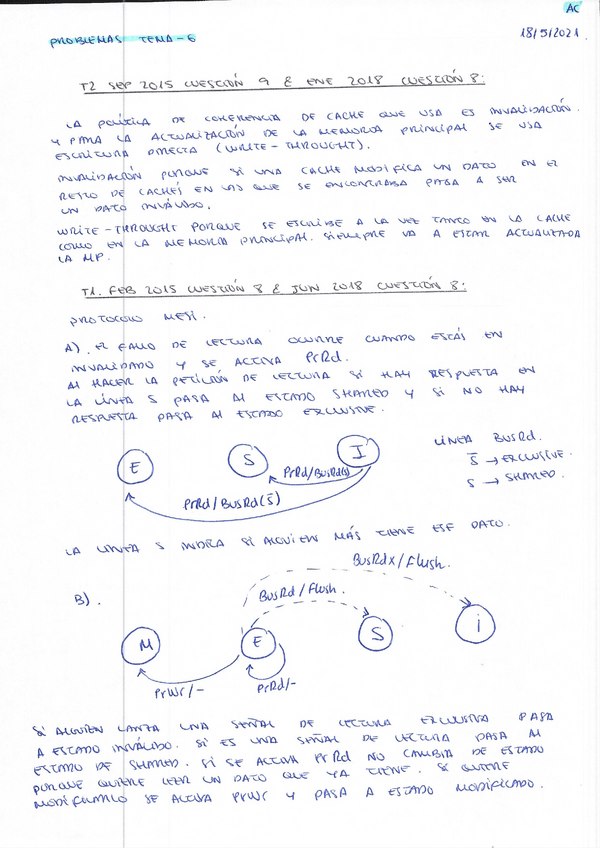 AC
PROBLEMAS TEMA-6
18/5/2021
T2 SEP 2015 CUESTIÓN 9 & ENE 2018 CUESTIÓN 8:
LA POLÍTICA DE COHERENCIA DE CACHE QUE USA ES INVALIDACIÓN.
Y PARA LA ACTUALIZACIÓN DE LA MEMORIA PRINCIPAL SE USA
ESCRITURA DIRECTA (WRITE-THROUGHT).
INVALIDACIÓN PORQUE SI UNA CACHE MODIFICA UN DATO EN EL
RESTO DE CACHÉS EN LAS QUE SE ENCONTRABA PASA A SER
UN DATO INVÁLIDO.
WRITE-THROUGHT PORQUE SE ESCRIBE A LA VEZ TANTO EN LA CACHE
COMO EN LA MEMORIA PRINCIPAL. SIEMPRE VA A ESTAR ACTUALIZADA
LA MP.
T1. FEB 2015 CUESTIÓN 8 & JUN 2018 CUESTIÓN 8:
PROTOCOLO MESI.
A). EL FALLO DE LECTURA OCURRE CUANDO ESTÁS EN
INVALIDADO Y SE ACTIVA PrRd.
AL HACER LA PETICIÓN DE LECTURA SI HAY RESPUESTA EN
LA LÍNEA S PASA AL ESTADO SHARED Y SI NO HAY
RESPUESTA PASA AL ESTADO EXCLUSIVE.
E S I
PrRd/BusRd(S)
PrRd/BusRd(S̅)
LÍNEA BUSRd.
S̅ → EXCLUSIVE.
S → SHARED.
LA LÍNEA S INDICA SI ALGUIEN MÁS TIENE ESE DATO.
B).
BusRdx/Flush.
BusRd/Flush.
M E S i
PrWr/-
PrRd/-
SI ALGUIEN LANZA UNA SEÑAL DE LECTURA EXCLUSIVA PASA
A ESTADO INVÁLIDO. SI ES UNA SEÑAL DE LECTURA PASA AL
ESTADO DE SHARED. SI SE ACTIVA PrRd NO CAMBIA DE ESTADO
PORQUE QUIERE LEER UN DATO QUE YA TIENE. SI QUIERE
MODIFICARLO SE ACTIVA PrWr Y PASA A ESTADO MODIFICADO.